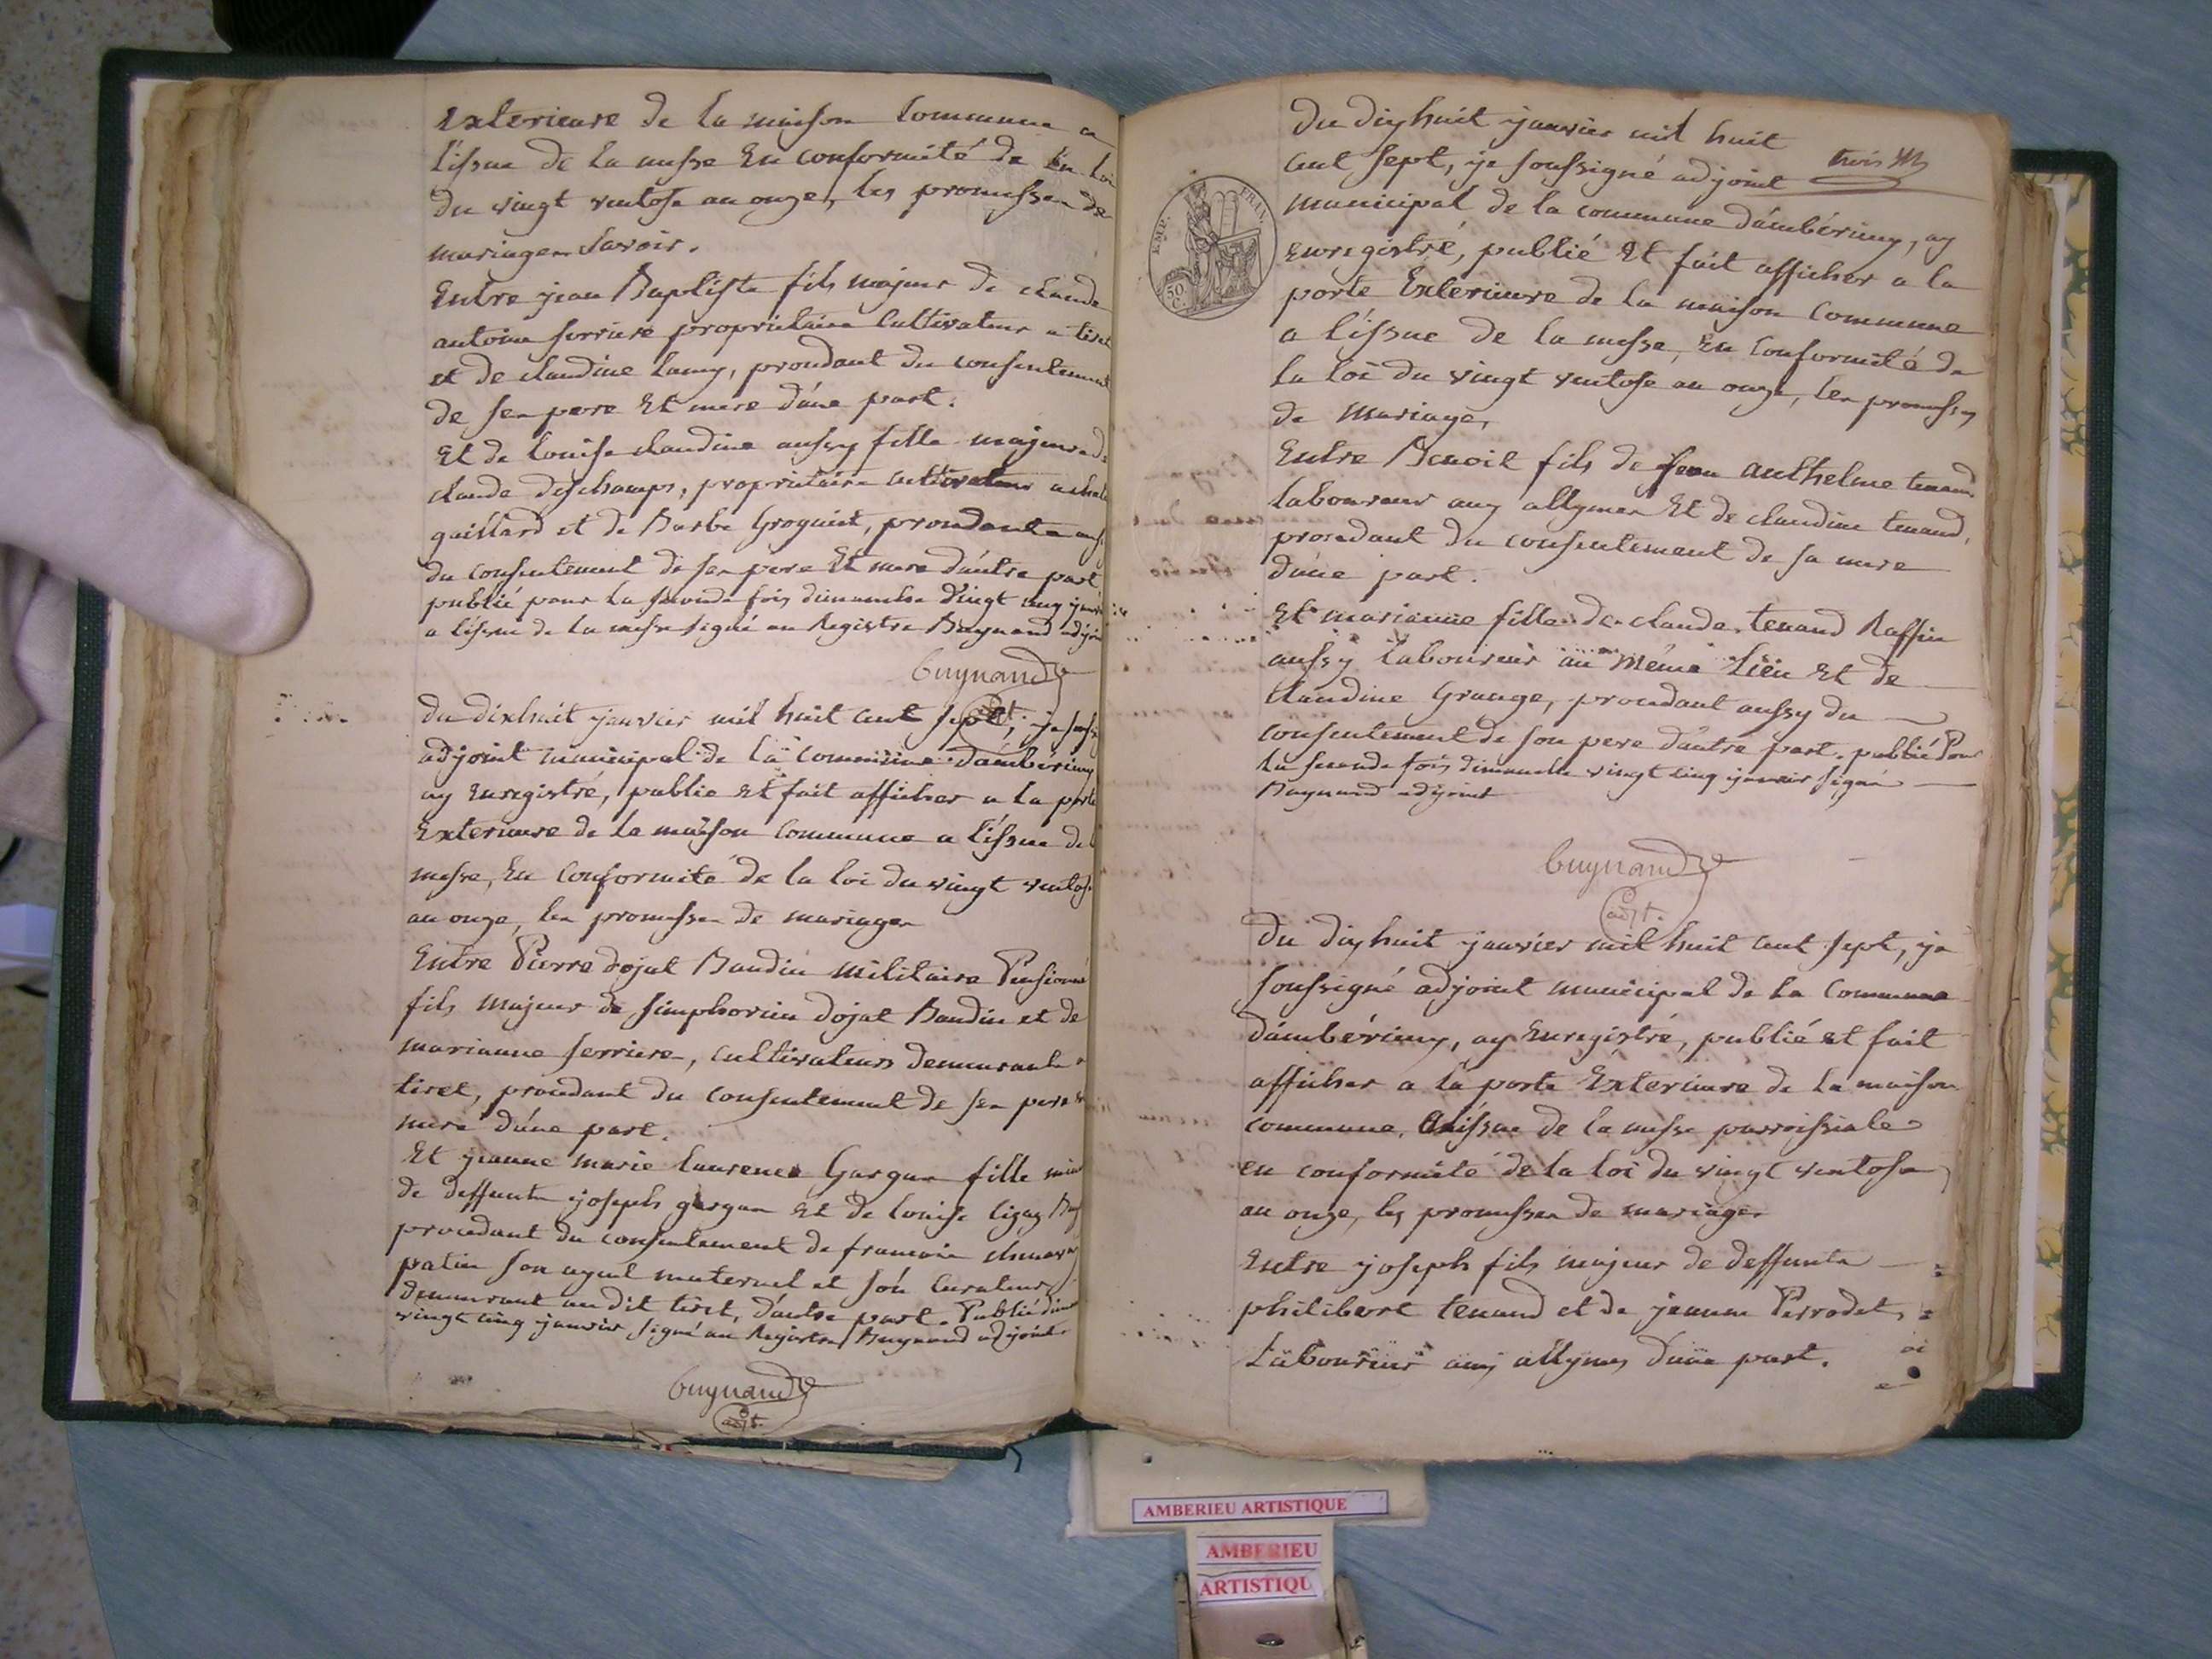 Exterieure de la maison Commune a
l'issue de la messe En conformité de la loi
du vingt ventose an onze, les promesses de
mariages Savoir.
Entre jean Baptiste fils majeur de claude
antoine ferriere propriétaire Cultivateur a tiret
et de claudine lamy, procedant du consentement
de ses pere Et mere d'une part.
Et de louise claudine aussy fille majeure de
claude deschamps, propriétaire cultivateur
gaillard et de Barbe Groguiet, procedante
du consentement de ses père Et mere d'autre part
publié pour la seconde fois dimanche vingt cinq janvier
a l'issue de la messe signé au Registre Buynand adjoint
Buynand
adjt.
du dixhuit janvier mil huit cent sept, je
adjoint municipal de la commune d'ambérieux
ay Enregistré, publie Et fait afficher a la porte
Exterieure de la maison Commune a l'issue de
messe, En Conformité de la loi du vingt ventose
an onze, les promesses de mariages
Entre Pierre dojat Baudin militaire Pensionné
fils majeur de simphorien dojat Baudin et de
marianne ferriere, cultivateurs demeurants a
tiret, procedant du Consentement de ses pere
mere d'une part.
Et jeanne marie laurence Gargan fille
de deffunts joseph gargan Et de louise
procedant du consentement de francois
patin son ayeul maternel et son Curateur
demeurant au dit tiret, d'autre part. Publié
vingt cinq janvier signé au Registre Buynand adjoint
Buynand
adjt.
du dixhuit janvier mil huit
cent sept, je soussigné adjoint trois
municipal de la commune d'ambérieux, ay
enregistré, publié Et fait afficher a la
EMP. FRAN.
50 C.
porte Exterieure de la maison Commune
a l'issue de la messe, En Conformité de
la loi du vingt ventose an onze, les promesses
de mariage,
Entre Benoit fils de Jean anthelme tenand
laboureur aux allymes Et de claudine tenand,
procedant du consentement de sa mere
d'une part.
Et marianne fille de claude tenand Raffin
aussy laboureur au même lieu Et de
claudine Grange, procedant aussy du
consentement de son pere d'autre part. publié Pour
la seconde fois dimanche vingt cinq janvier signé
Buynand adjoint
Buynand
adjt.
du dixhuit janvier mil huit cent sept, je
soussigné adjoint municipal de la Commune
d'ambérieux, ay Enregistré, publié et fait
afficher a la porte Exterieure de la maison
commune, a l'issue de la messe parroissiale
en conformité de la loi du vingt ventose
an onze, les promesses de mariages
Entre joseph fils majeur de deffunts
philibert tenand et de jeanne Perrodet,
laboureur aux allymes d'une part.
AMBERIEU ARTISTIQUE
AMBERIEU
ARTISTIQU